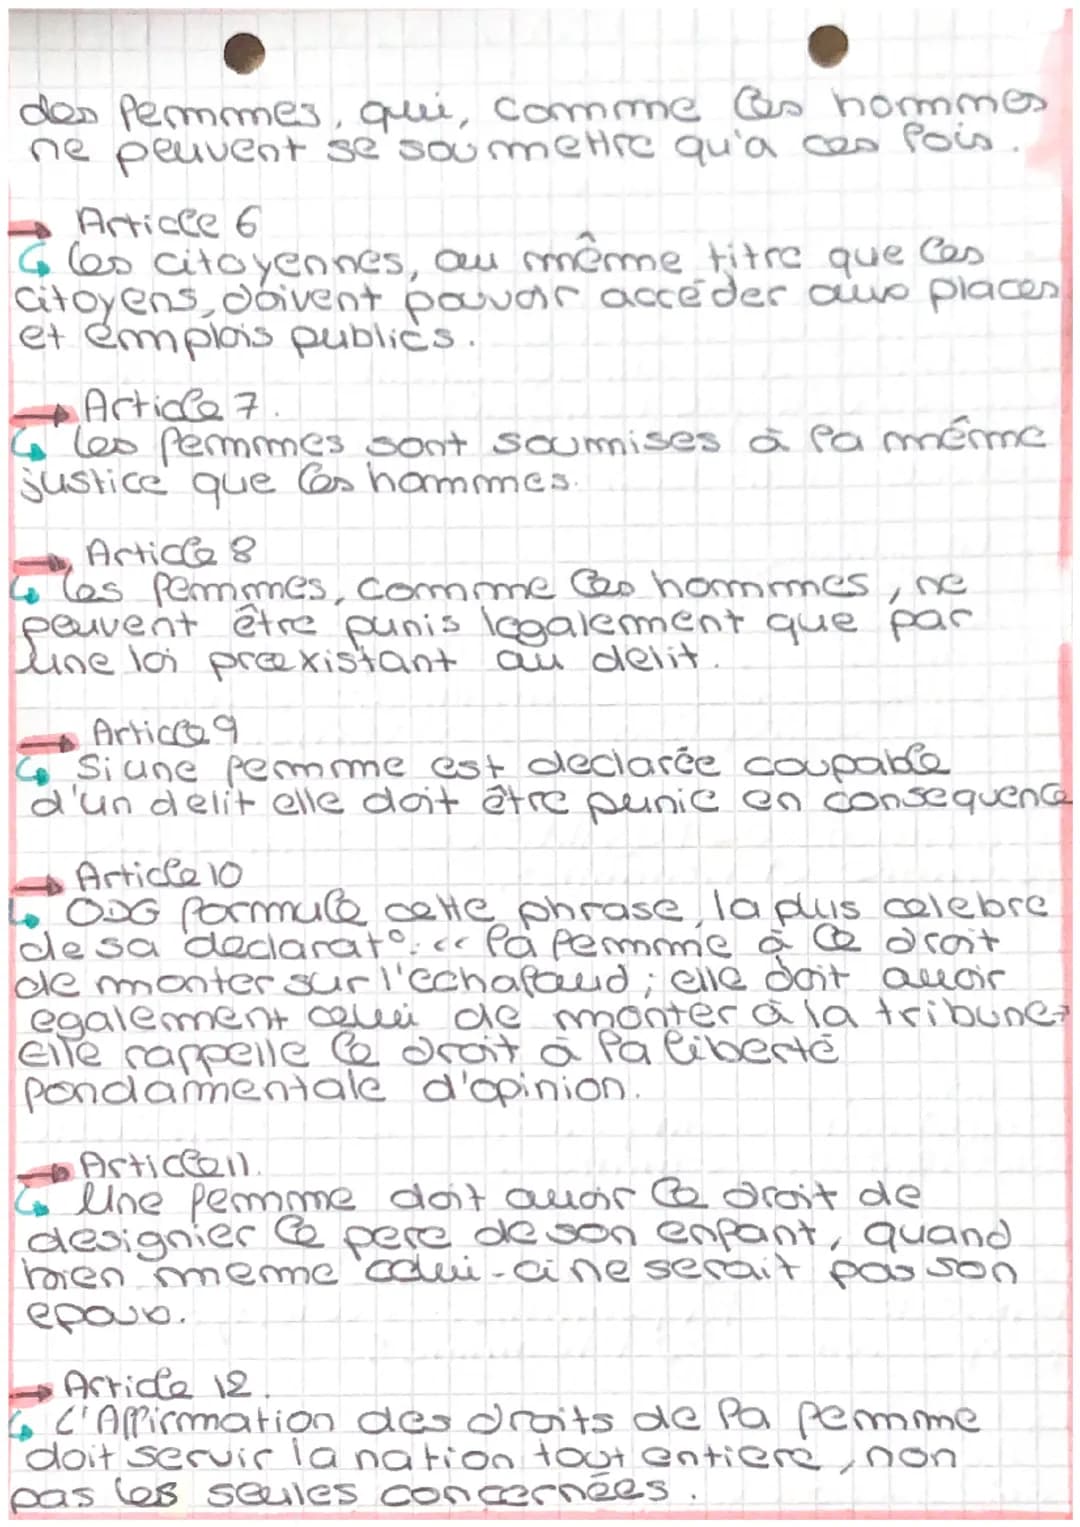 des femmes, qui, comme les hommes
ne peuvent se soumettre qu'a ces lois.
→ Article 6
↳ les citoyennes, au même titre que les
citoyens, doivent pouvoir accéder aux places
et emplois publics.
→ Article 7.
↳ les femmes sont soumises à la même
justice que les hommes.
→ Article 8
↳ les femmes, comme les hommes, ne
peuvent être punis legalement que par
une loi preexistant au delit.
→ Article 9
↳ Si une femme est declarée coupable
d'un delit elle doit être punie en consequence
→ Article 10
↳ ODG formule cette phrase, la plus celebre
de sa declarat°: << la femme à le droit
de monter sur l'echafaud; elle doit avoir
egalement celui de monter à la tribune>>
Elle rappelle le droit à la liberté
fondamentale d'opinion.
→ Article 11.
↳ Une femme doit avoir le droit de
designier le pere de son enfant, quand
bien meme celui-ci ne serait pas son
epoux.
→ Article 12.
↳ L'Affirmation des droits de la femme
doit servir la nation tout entiere, non
pas les seules concernées.